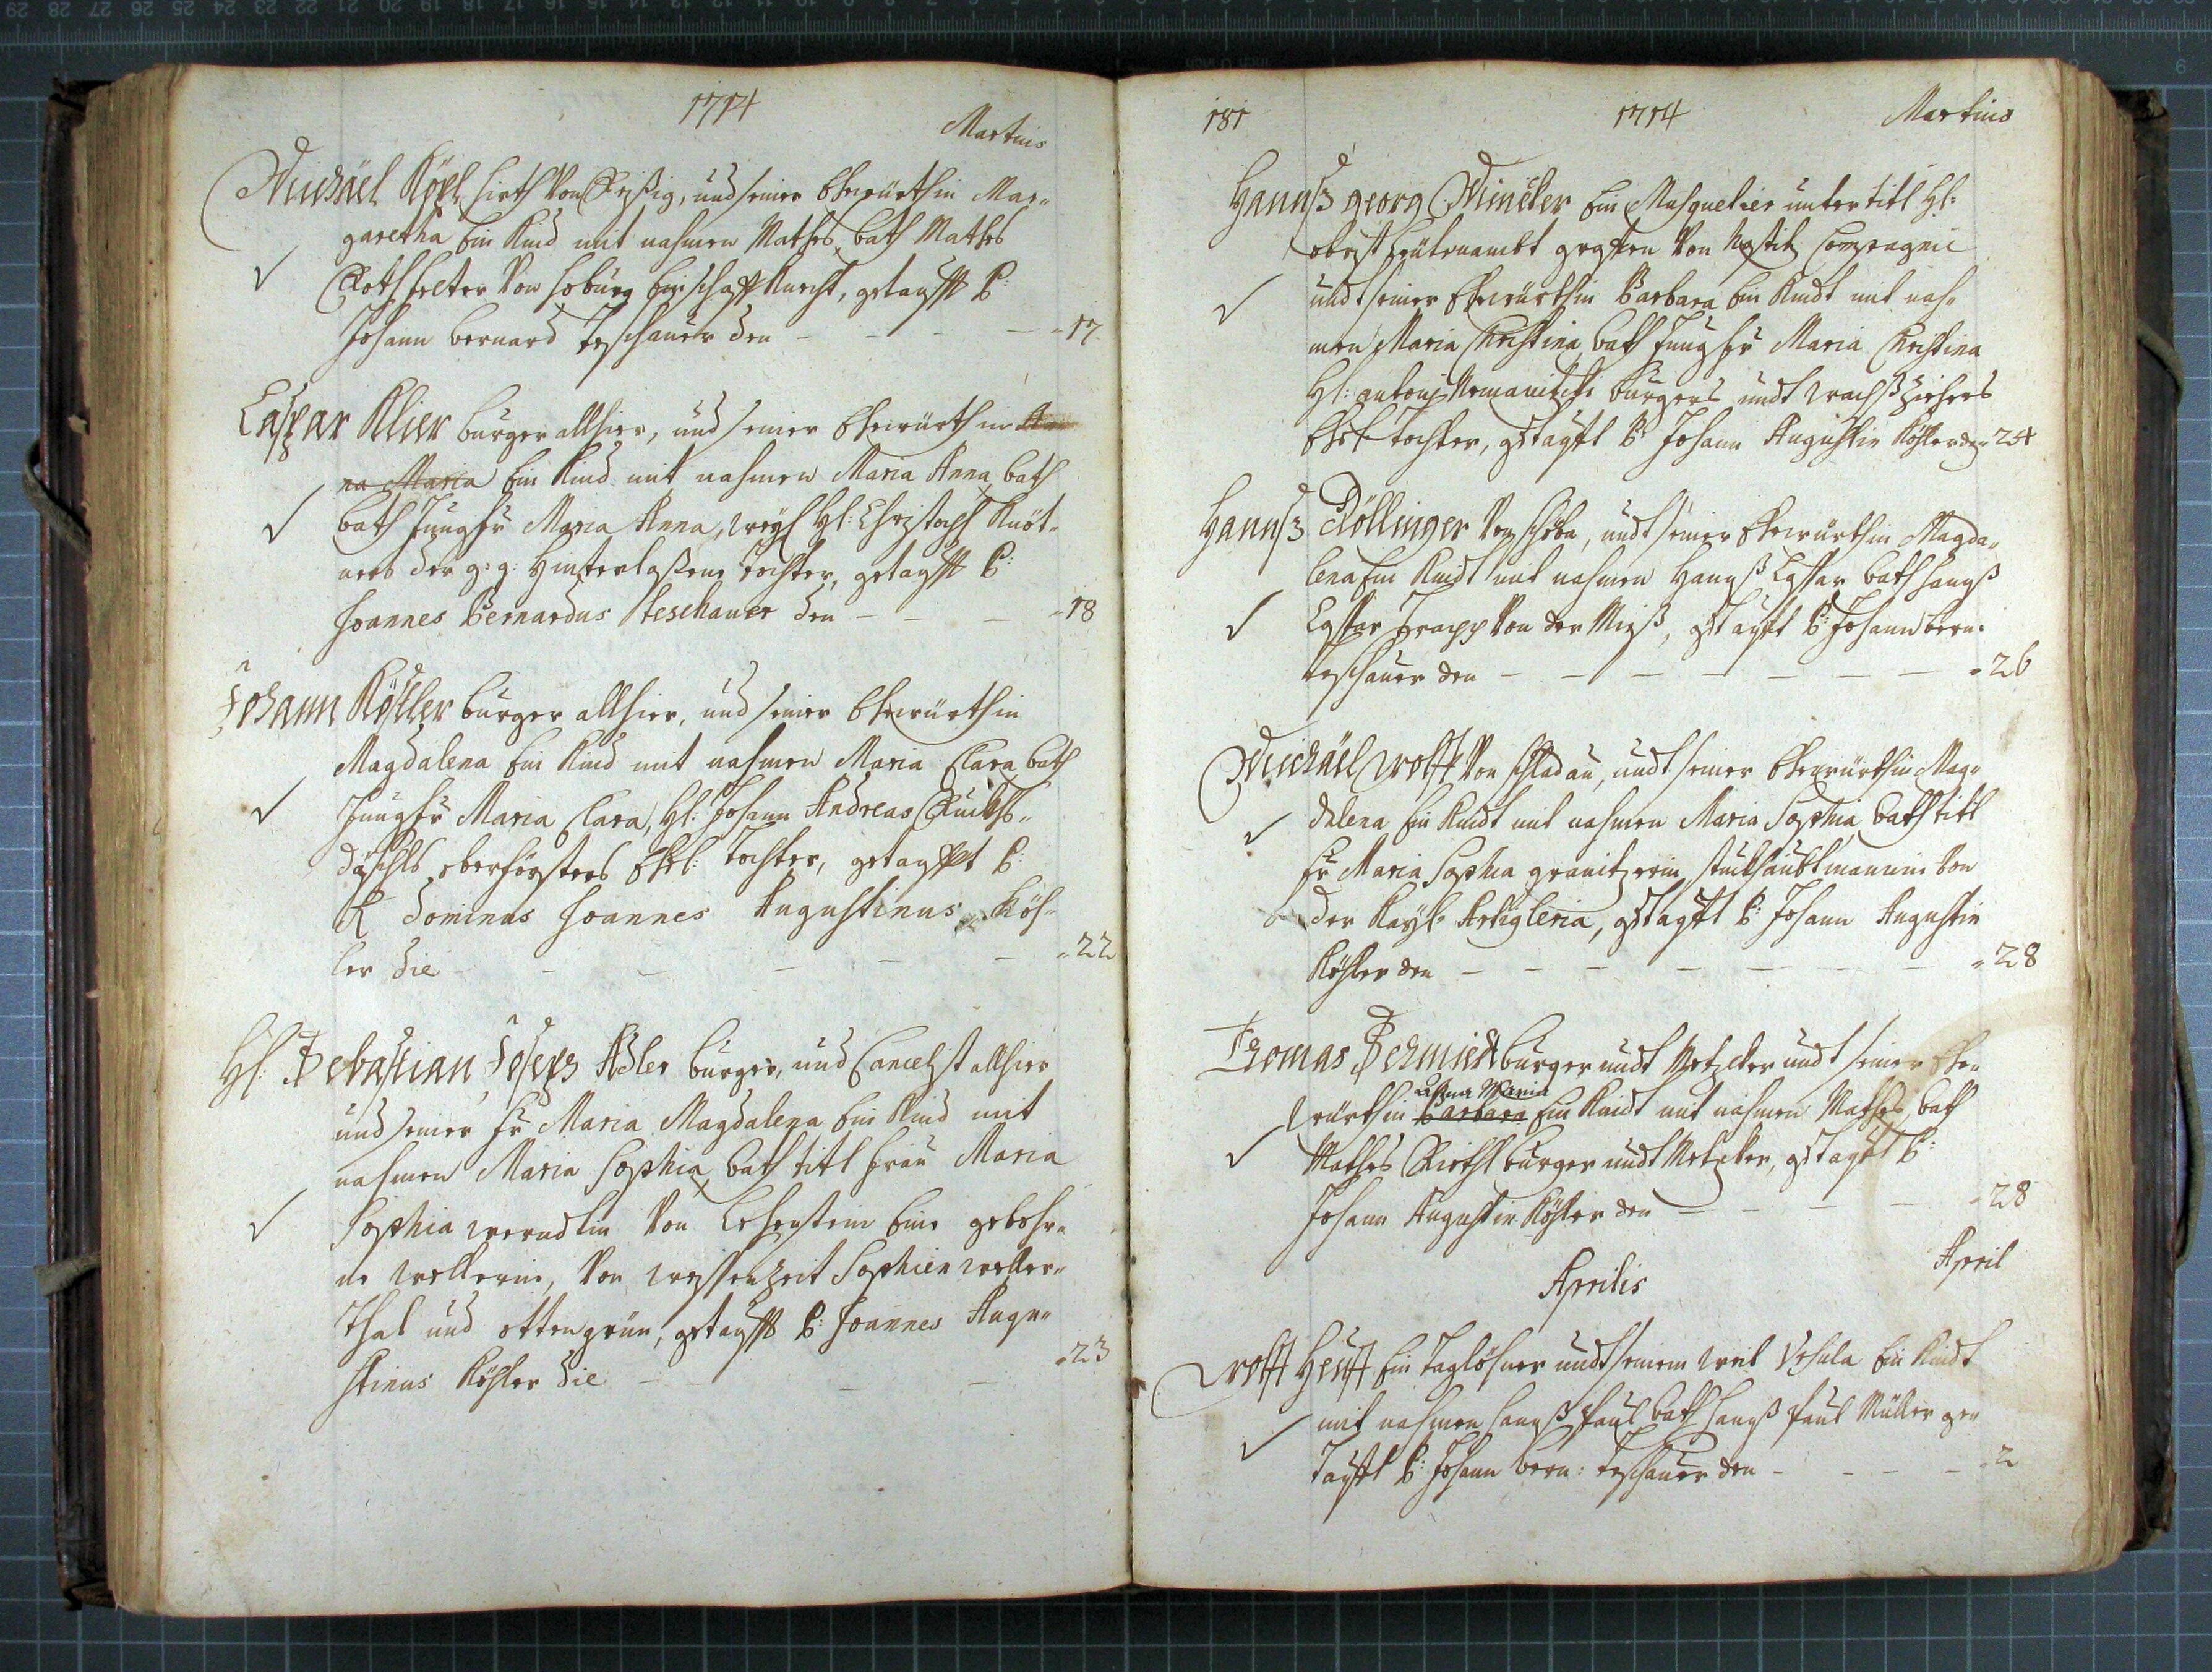 1714
Martius
Michäel Köpl hirth Von Reißig, und seiner Ehewürthin Mar„
garetha Ein Kind mit nahmen Mathes, bath Mathes
Von Ein schaff Knecht, getaufft P:
Johann bernard Teschauer den - - - - 17.
Caspar Klier burger allhier, und seiner Ehewürthin An
na Maria Ein Kind mit nahmen Maria Anna, bath
bath Jungfr Maria Anna, weyl Hl: Christoph Knöt„
ners der g: g: Hinterlaßene Tochter, getaufft P:
Joannes Bernardus Teschauer den - - - 18
Johann Köstler burger allhier, und seiner Ehewürthin
Magdalena Ein Kind mit nahmen Maria Clara, bath
Jungfr Maria Clara, Hl: Johann Andreas
oberförsters Ehel: Tochter, getaufft P:
R Dominus Joannes Augustinus Köh„
ler die - - - - - - 22
Hl: Sebastian Joseph Adler burger, und Cancelist allhier
und seiner Fr Maria Magdalena Ein Kind mit
nahmen Maria Sophia, bath titl Frau Maria
Sophia werndlin Von Lehenstein Eine gebohr„
ne wellerin, Von Sophien weller„
thal und ottengrün, getaufft P: Joannes Augu„
stinus Köhler die - - - 23
181
1714
Martius
Hannß georg Winckler Ein Musquetier unter titl Hl:
obrist leutenambt graffen Von Nostitz Compagnie
undt seiner Ehewürthin Barbara Ein Kindt mit nah„
men Maria Christina, bath Jungfr Maria Christina
Hl: antonj burgers undt wachßziehers
Ehel tochter, gedaufft P: Johann Augustin Köhler den 24
Hannß Röllinger Von schöba, undt seiner Ehewürthin Magda„
lena Ein Kindt mit nahmen Hannß Caspar bath hannß
Caspar Trapp Von der Mieß, gedaufft P: Johann bern:
teschauer den - - - - - - - 26
Michäel wolff Von schladau, undt seiner Ehewürthin Mag„
dalena Ein Kindt mit nahmen Maria Sophia bath titl
Fr Maria Sophia granitzerin, stuckhaubtmannin Von
der Kaysl Artigleria, gedaufft P: Johann Augustin
Köhler den - - - - - - - 28
Thomas Schmidt burger undt Metzcker undt seiner Ehe„
Anna Maria
würthin Barbara Ein Kindt mit nahmen Mathes, bath
Mathes burger undt Metzcker, gedaufft P:
Johann Augustin Köhler den - - - - 28
Aprilis
April
wolff Heüft Ein taglöhner undt seinem weib Vrsula Ein Kindt
mit nahmen hannß Paul bath hannß Paul Müller ge„
daufft P: Johann bern: teschauer den - - - - 2